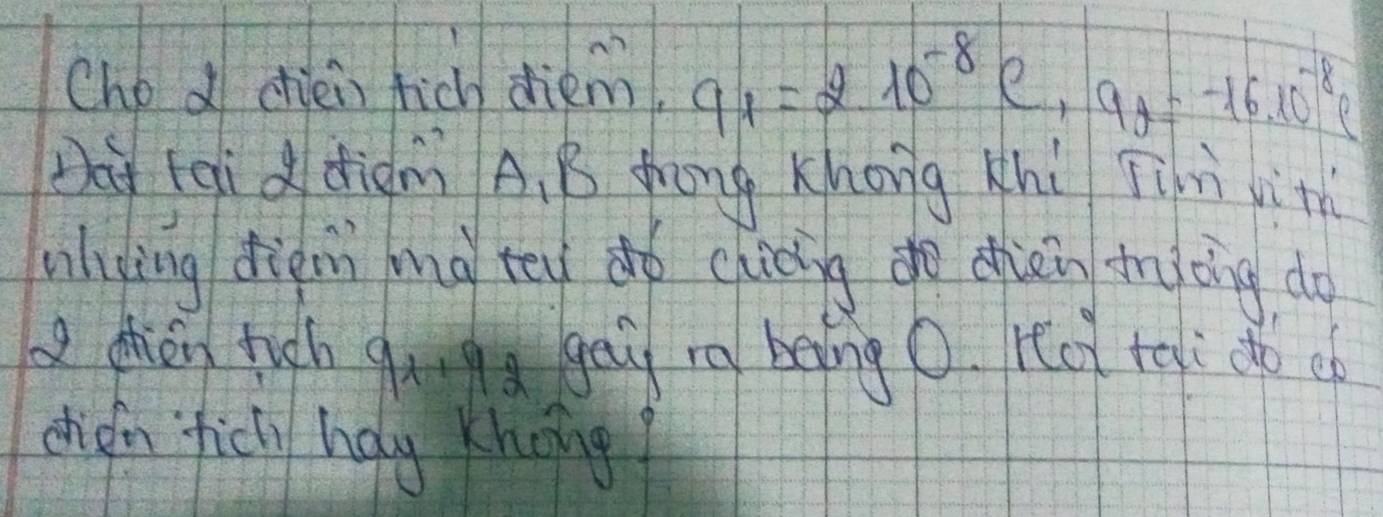 Cho 2 điện tích điểm. q1 = 2.10⁻⁸ C, q2 = -16.10⁻⁸C
Đặt tại 2 điểm A, B trong không khí Tìm vị trí
những điểm mà tại đó cường độ điện trường do
2 điện tích q1, q2 gây ra bằng 0. Hỏi tại đó có
điện tích hay không?